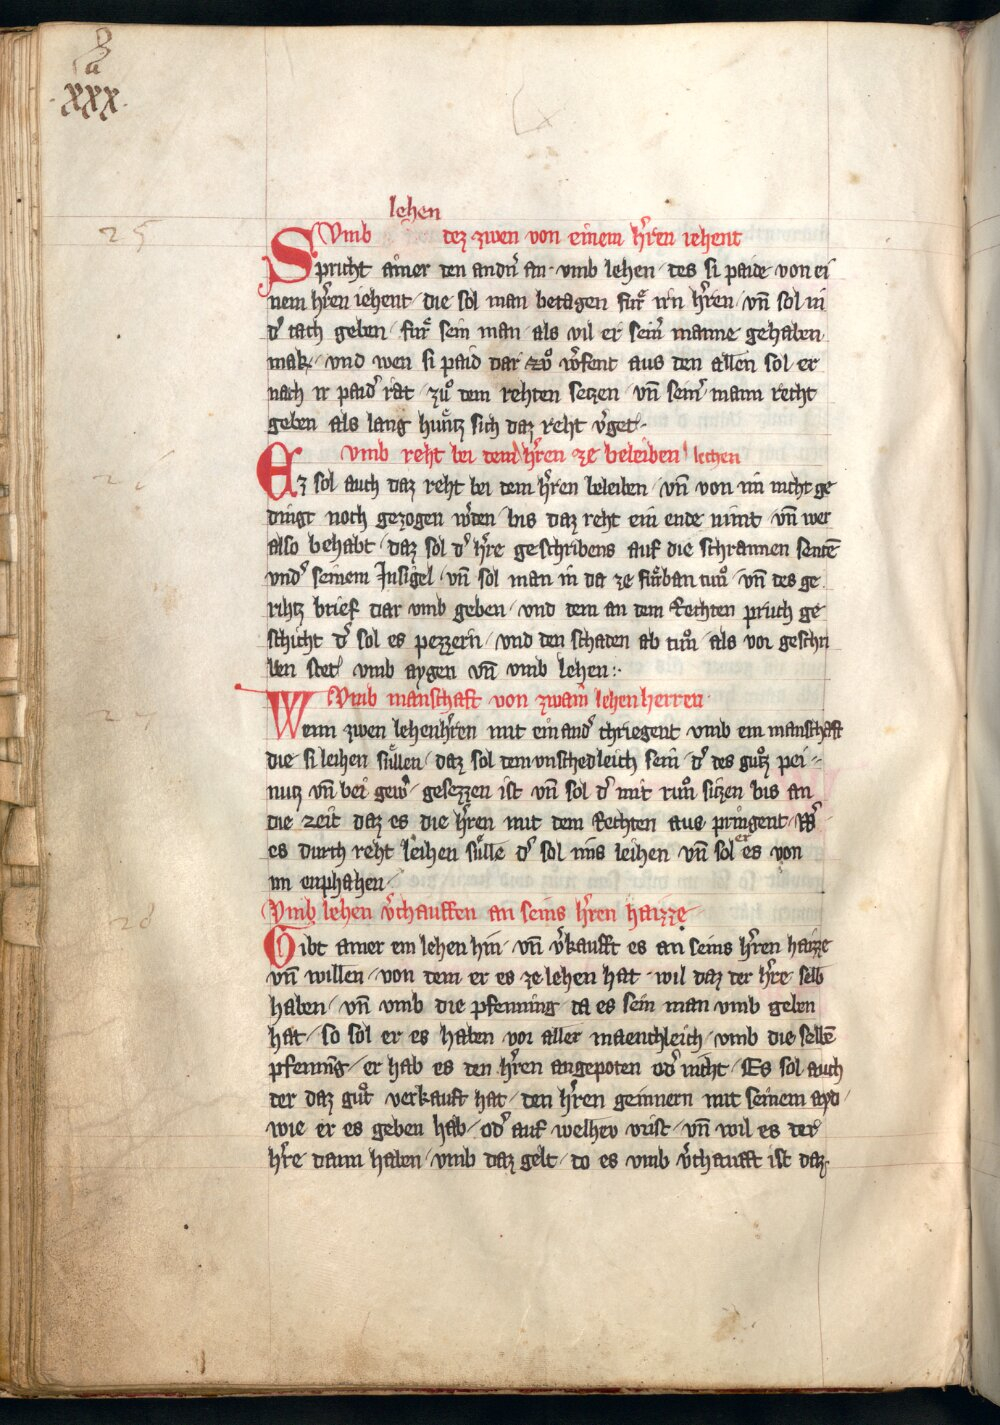 a
·xxx·
lehen
25
Vmb dez zwen von einem hˀren iehent
Spricht ainer den andˀn an · vmb lehen / des si paide von ei
nem hˀren iehent / die sol man betagen fuͤr irn hˀren / vn̄ sol in
dˀ tach geben / fuͤr sein man / als vil er seinˀ manne gehaben
mak / vnd wen si paid dar zuͦ wˀfent aus den allen sol er
nach ir paidˀ rat / zuͦ dem rehten setzen / vn̄ seinˀ mann recht
geben als lang huͤntz sich daz reht vˀgetˀ ·
26
vmb reht bei dem hˀren ze beleiben lechen
Ez sol auch daz reht bei dem hˀren beleiben / vn̄ von im nicht ge
dingt noch gezogen wˀden / bis daz reht ein ende nimt / vn̄ wer
also behabt / daz sol dˀ hˀre geschribens auf die schrannen sentē
vndˀ seinem Insigel / vn̄ sol man in da ze fuͤrban tuͦn / vn̄ des ge
rihtz brief dar vmb geben / vnd dem an dem Rechten pruch ge
schicht dˀ sol es pezzern / vnd den schaden ab tuͦn / als vor geschri
ben stetˀ vmb aygen vn̄ vmb lehen :·
27
Vmb manschaft von zwain lehen herren ·
Wenn zwen lehenhˀren mit ein andˀ chriegent vmb ein manschaft
die si leihen suͤllen / daz sol dem vnschedleich sein / dˀ des guͦtz pei
nutz vn̄ bei gewˀ gesezzen ist vn̄ sol dˀ mit ruͦm sitzen bis an
die zeit daz es die hˀren mit dem Rechten aus pringent / Wˀ
es durch reht leihen suͤlle dˀ sol im̄s leihen vn̄ sol er es von
im enphahen /
28
Vmb lehen vˀchauffen an seins hˀren haizze
Gibt ainer ein lehen hin / vn̄ vˀkaufft es an seins hˀren haizze
vn̄ willen / von dem er es ze lehen hat / wil daz der hˀre selb
haben / vn̄ vmb die pfenning da es sein man vmb geben
hat / so sol er es haben vor aller maenchleich / vmb die selbē
pfennīg / er hab es den hˀren angepoten odˀ nicht / Es sol auch
der daz guͦt verkauft hat / den hˀren geinnern mit seinem ayd /
wie er es geben hab / odˀ auf welhev vrist / vn̄ wil es der
hˀre dann haben / vmb daz gelt / do es vmb vˀchaufft ist daz